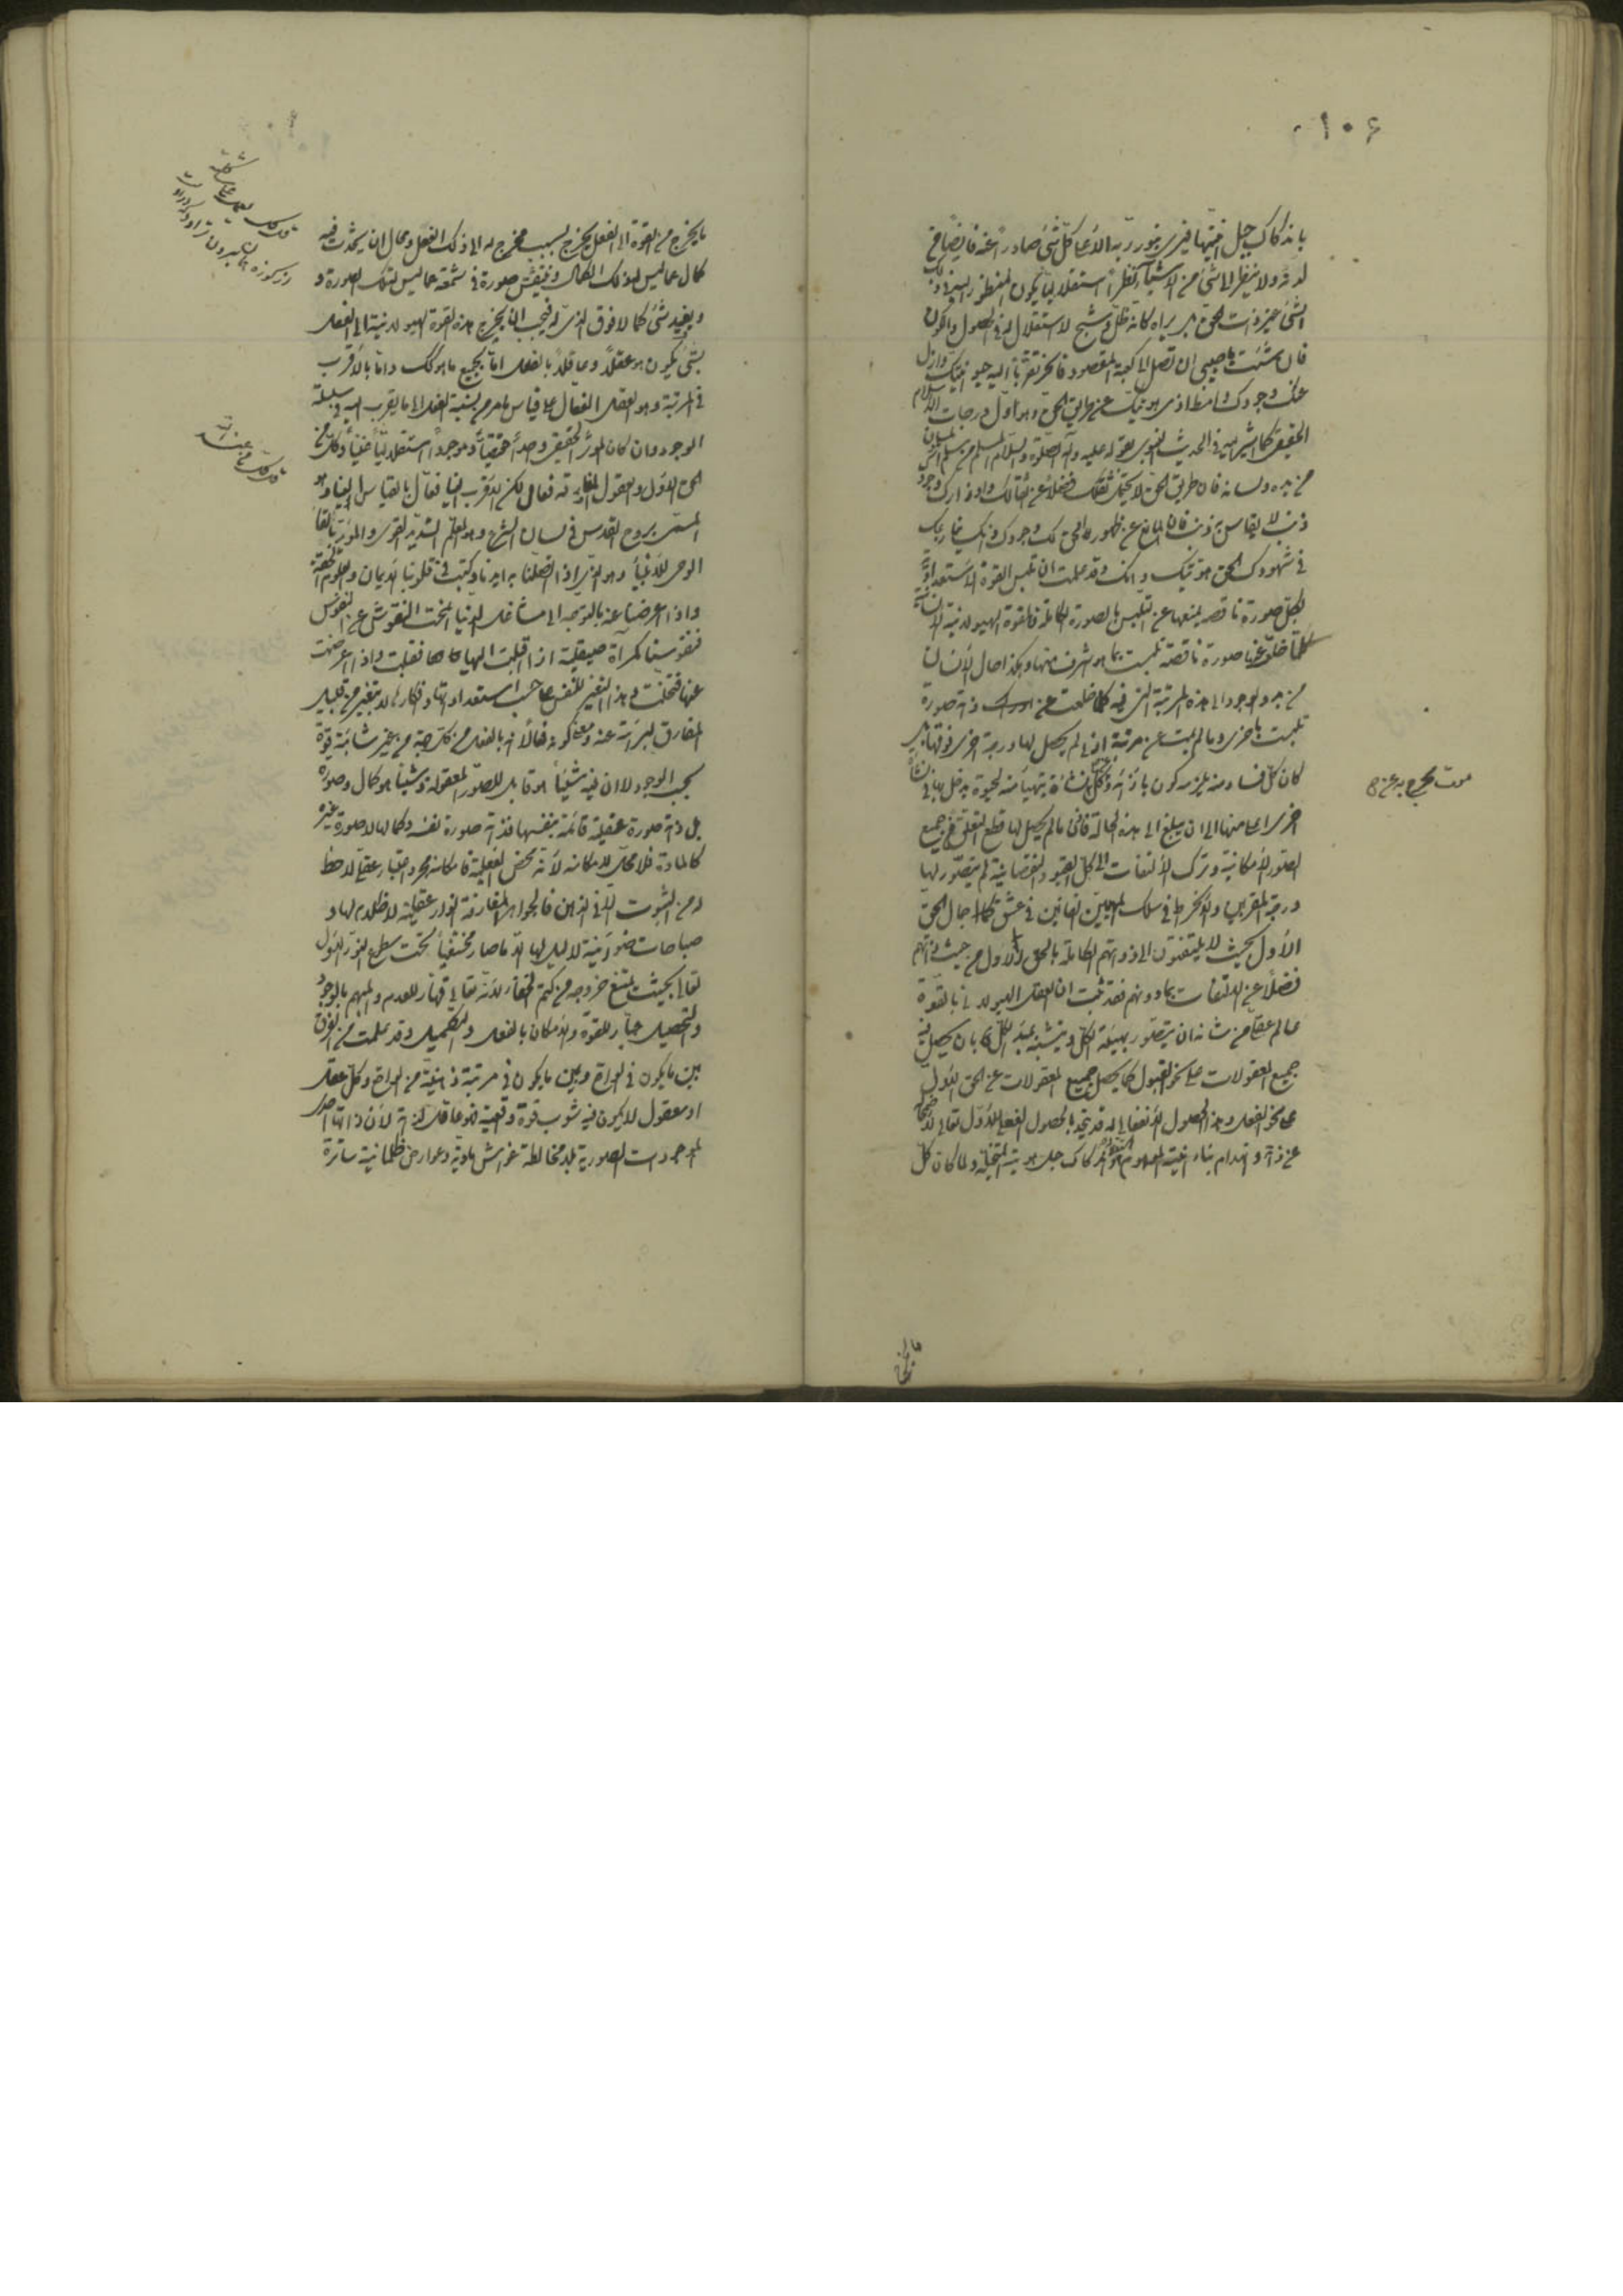 ١٠٦
باندكاك جبل انيتها فيرى بنور ربه الأعلى كل شئ صادراً عنه فايضاً من
لدنه ولا ينظر الى شئ من الاشياء نظراً استقلالياً يكون المنظور اليه فى ذلك
الشئ غير ذات الحق بل يراه كانه ظل وشبح لا استقلال له فى الحصول والكون
فان شئت يا حبيبى ان تصل الى كعبة المقصود فانحر تقرباً اليه حيوانيتك وازل
عنك وجودك وامط اذى هويتك عن طريق الحق وهو اول درجات الاسلام
الحقيقى كما اشير اليه فى الحديث النبوى بقوله عليه وآله الصلوة والسلام المسلم من سلم المسلمون
من يده ولسانه فان طريق الحق لا يحتمل ثقلك فضلاً عن اثقالك واوزارك وجودك
ذنب لا يقاس به ذنب فان المانع عن ظهور الحق لك وجودك وانك
فى شهودك الحق هويتك وانك وقد علمت ان تلبس القوة الاستعدادية
لكل صورة ناقصة يمنعها عن التلبس بالصورة الكاملة فالقوة الهيولانية الانسانية
كلما خلت عنها صورة ناقصة تلبست بما هو اشرف منها وهكذا حال الانسان
من بدو الوجود الى هذه المرتبة التى فيه كلما خلعت عن ذاته صورة
تلبست باخرى وما لم يمت عن مرتبة ادنى لم يحصل لها درجة اخرى فوقها بل
كان كل فساد منه يلزمه كون بازائه وكل نشأة يتهيأ منه لحيوة يدخل بها فى نشأة
اخرى اعلى منها الى ان يبلغ الى هذه الحالة فانى ما لم يحصل لها قطع التعلق عن جميع
الصور الامكانية وترك الالتفات الى كل القيود النقصانية لم يتصور لها
درجة المقربين والانخراط فى سلك المهيمين الهائمين فى عشق جمال الحق
الأول بحيث لا يلتفتون الى ذواتهم الكاملة بالحق الأول من حيث ذواتهم
فضلاً عن الالتفات بما دونهم فقد ثبت ان العقل الهيولانى بالقوة
عالم عقلى من شانه ان يتصور بهيئة الكل ويتشبه بمبدأ الكل بان يحصل فيه
جميع المعقولات على نحو القبول كما يحصل جميع المعقولات عن الحق الأول
على نحو الفعل وهذا الحصول الانفعالى له قد يتحد بالحصول الفعلى للأول تعالى
عن ذاته وانهدام بناء انيته الموهومة واندكاك جبل هويته المتخيلة ولما كان كل
موت يخرج به عن
ما يخرج من القوة الى الفعل يخرج بسبب مخرج له الى ذلك الفعل ومحال ان يحدث فيه
كمال عما ليس له ذلك الكمال وينتقش صورة فى شمعة عما ليس له تلك الصورة و
ويفيد شئ كمالا فوق الذى له فيجب ان يخرج هذه القوة الهيولانية الى الفعل
بشئ يكون هو عقلاً وعاقلاً بالفعل اما بجميع ما هو كك واما بالأقرب
فى المرتبة وهو العقل الفعال على قياس ما مر من نسبة الفعل الى ما يقرب اليه فى سلسلة
الوجود وان كان المؤثر الحقيقى واحداً حقيقياً وموجوداً استقلالياً غنياً وكل من
الحق الأول والعقول المفارقة فعال لكن الاقرب الينا فعال بالقياس الينا وهو
المسمى بروح القدس فى لسان الشرع وهو المعلم الشديد القوى والمؤيد بالقاء
الوحى للأنبياء وهو الذى اذا اتصلنا به ايدنا وكتب فى قلوبنا الايمان والعلوم الحقة
واذا اعرضنا عنه بالتوجه الى مشاغل الدنيا انمحت النقوش عن النفوس
فنفوسنا كمرآة صيقلية اذا اقبلت اليها قبلت واذا اعرضت
عنها تخلت وهذا التغير للنفس على حسب استعداداتها وافكارها لا بتغير من قبل
المفارق لبراءته عنه ومعنى كونه فعالاً انه بالفعل من كل جهة من غير شائبة قوة
بحسب الوجود لا ان فيه شيئاً هو قابل للصور المعقولة وشيئاً هو كمال وصورة
بل ذاته صورة عقلية قائمة بنفسها فذاته صورة نفسه وكمالها لا صورة غيره
كالمادة فلا محل لامكانه لأنه محض الفعلية فامكانه مجرد اعتبار عقلى لا حظ
له من الثبوت الا فى الذهن فالجواهر المفارقة انوار عقلية لا ظلام لها و
صباحات ضوئية لا ليل لها الا ما صار مختفياً تحت سطوع النور الأول
تعالى بحيث يمتنع خروجه من كتم الخفاء لأنه تعالى قهار للعدم والمبهم بالوجود
والتحصيل جبار للقوة والامكان بالفعل والتكميل وقد علمت من الفرق
بين ما يكون فى الواقع وبين ما يكون فى مرتبة ذهنية من الواقع وكل عقل
او معقول لا يكون فيه شوب قوة واقعية فهو عاقل لذاته لأن ذاتها احدى
الموجودات الصورية بلا مخالطة غواشى مادية وعوارض ظلمانية ساترة
قل كل يعمل على شاكلته
از كوزه همان برون تراود كه در اوست
قل كل من عند الله